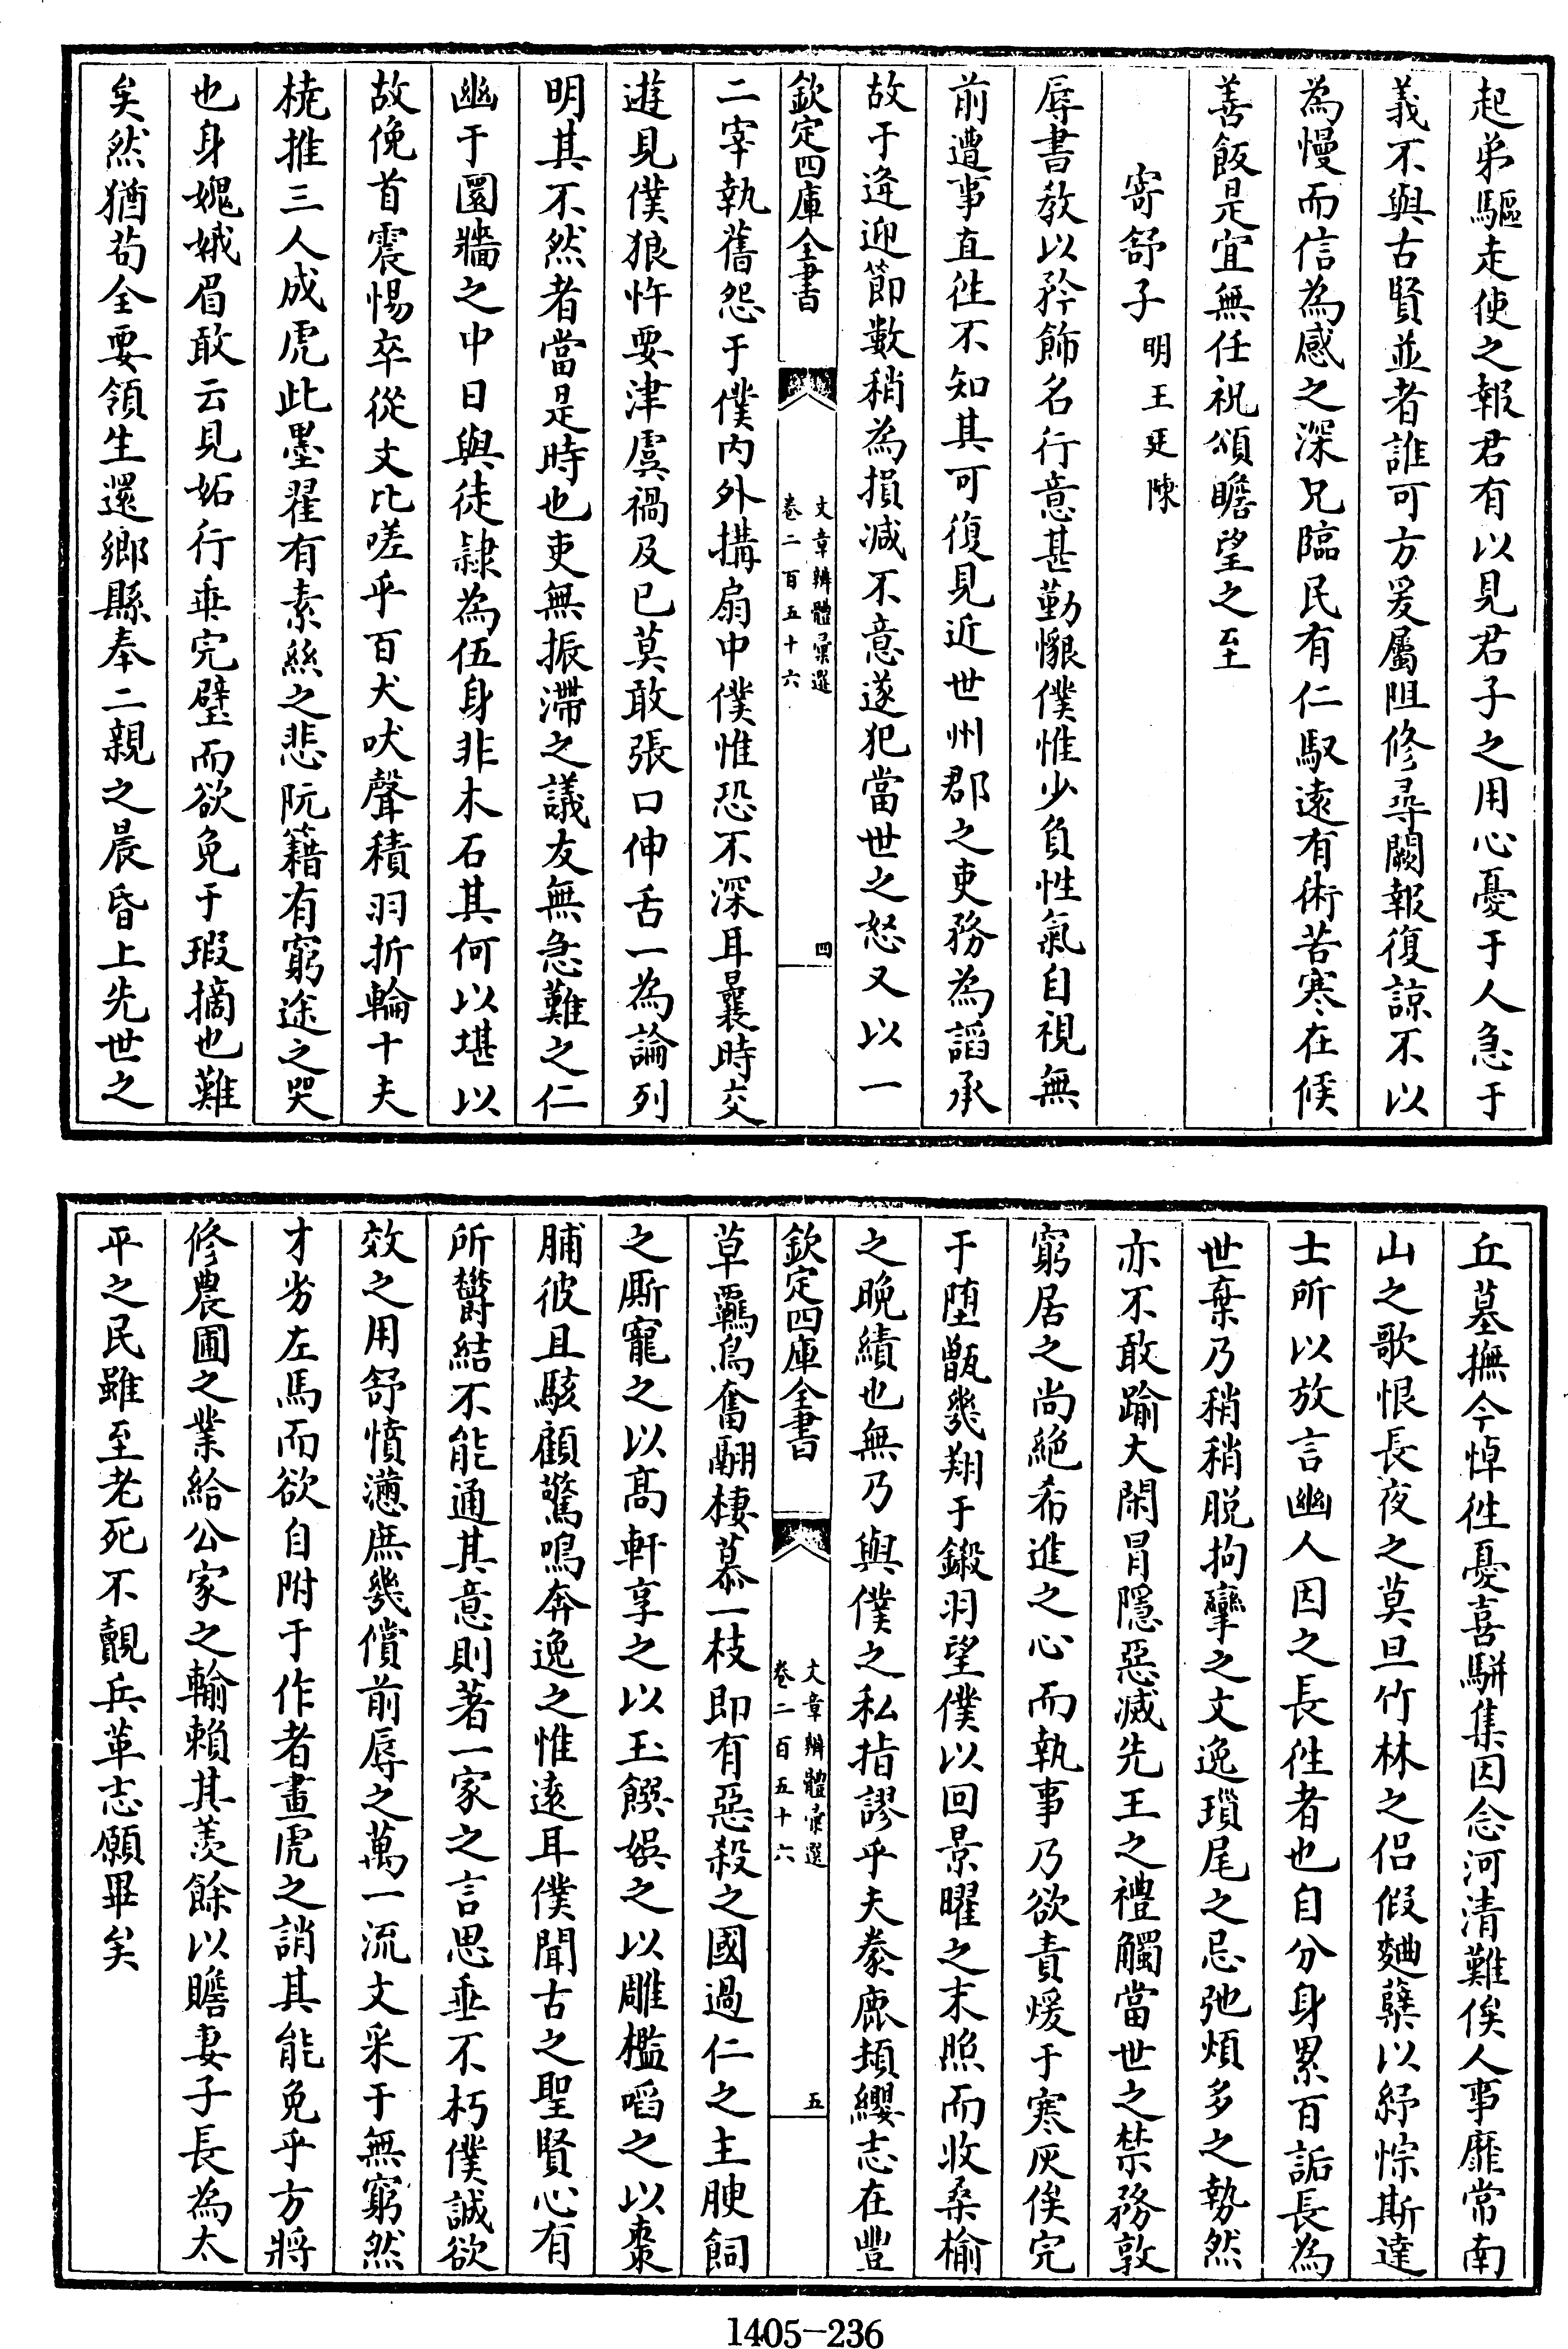 起弟驅走使之報君有以見君子之用心憂于人急于
義不與古賢並者誰可方爰屬阻修尋闕報復諒不以
為慢而信為感之深兄臨民有仁馭遠有術苦寒在候
善飯是宜無任祝頌瞻望之至
寄舒子 明王廷陳
辱書教以矜飾名行意甚勤懇僕惟少負性氣自視無
前遭事直徃不知其可復見近世州郡之吏務為謟承
故于逄迎節數稍為損减不意遂犯當世之怒又以一
欽定四庫全書
文章辨體彚選
卷二百五十六
四
二宰執舊怨于僕内外搆扇中僕惟恐不深耳曩時交
遊見僕狼忤要津虞禍及已莫敢張口伸舌一為論列
明其不然者當是時也吏無振滯之議友無急難之仁
幽于圜牆之中日與徒隷為伍身非木石其何以堪以
故俛首震惕卒從文比嗟乎百犬吠聲積羽折輪十夫
橈推三人成虎此墨翟有素絲之悲阮籍有窮途之哭
也身媿娥眉敢云見妬行乖完璧而欲免于瑕摘也難
矣然猶茍全要領生還鄉縣奉二親之晨昏上先世之
丘墓撫今悼徃憂喜駢集因念河清難俟人事靡常南
山之歌恨長夜之莫旦竹林之侣假麯蘖以紓悰斯達
士所以放言幽人因之長徃者也自分身累百詬長為
世棄乃稍稍脱拘攣之文逸瑣尾之忌弛煩多之勢然
亦不敢踰大閑冐隱惡滅先王之禮觸當世之禁務敦
窮居之尚絶希進之心而執事乃欲責煖于寒灰俟完
于堕甑幾翔于鎩羽望僕以回景曜之末照而收桑榆
之晚績也無乃與僕之私指謬乎夫豢鹿頓纓志在豐
欽定四庫全書
文章辨體彚選
卷二百五十六
五
草羈鳥奮翮棲慕一枝即有惡殺之國過仁之主腴飼
之厮寵之以髙軒享之以玉饌娯之以雕檻㗖之以棗
脯彼且駭顧驚鳴奔逸之惟遠耳僕聞古之聖賢心有
所欝結不能通其意則著一家之言思垂不朽僕誠欲
效之用舒憤懣庶幾償前辱之萬一流文采于無窮然
才劣左馬而欲自附于作者畫虎之誚其能免乎方將
修農圃之業給公家之輸賴其羡餘以贍妻子長為太
平之民雖至老死不覿兵革志願畢矣
1405-236